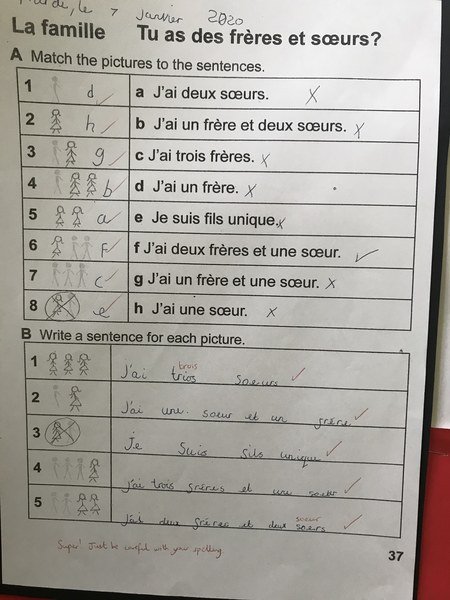 Mardi, le 7 Janvier 2020
La famille Tu as des frères et sœurs?
A Match the pictures to the sentences.
1 d a J'ai deux sœurs. X
2 h b J'ai un frère et deux sœurs. X
3 g c J'ai trois frères. X
4 b d J'ai un frère. X
5 a e Je suis fils unique. X
6 F f J'ai deux frères et une sœur. ✓
7 c g J'ai un frère et une sœur. X
8 e h J'ai une sœur. X
B Write a sentence for each picture.
trois
1 J'ai trios soeurs
2 J'ai une soeur et un frère
3 Je Suis fils unique
4 j'ai trois frères et une soeur
soeur
5 J'ai deux frères et deux soers
Super! Just be careful with your spelling.
37